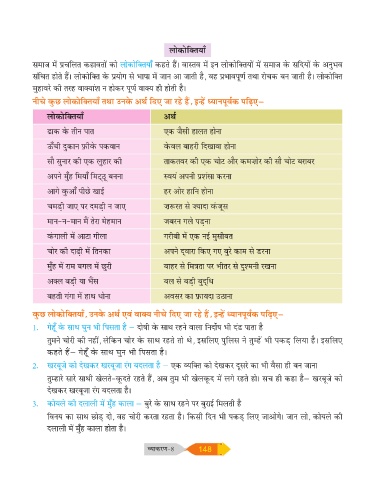 लोकोक्तियाँ
समाज में प्रचलित कहावतों को लोकोक्तियाँ कहते हैं। वास्तव में इन लोकोक्तियों में समाज के सदियों के अनुभव
संचित होते हैं। लोकोक्ति के प्रयोग से भाषा में जान आ जाती है, वह प्रभावपूर्ण तथा रोचक बन जाती है। लोकोक्ति
मुहावरे की तरह वाक्यांश न होकर पूर्ण वाक्य ही होती है।
नीचे कुछ लोकोक्तियाँ तथा उनके अर्थ दिए जा रहे हैं, इन्हें ध्यानपूर्वक पढ़िए–
लोकोक्तियाँ अर्थ
ढाक के तीन पात एक जैसी हालत होना
ऊँची दुकान फ़ीके पकवान केवल बाहरी दिखावा होना
सौ सुनार की एक लुहार की ताकतवर की एक चोट और कमज़ोर की सौ चोट बराबर
अपने मुँह मियाँ मिट्ठू बनना स्वयं अपनी प्रशंसा करना
आगे कुआँ पीछे खाई हर ओर हानि होना
चमड़ी जाए पर दमड़ी न जाए ज़रूरत से ज्यादा कंजूस
मान-न-मान मैं तेरा मेहमान जबरन गले पड़ना
कंगाली में आटा गीला गरीबी में एक नई मुसीबत
चोर की दाढ़ी में तिनका अपने द्वारा किए गए बुरे काम से डरना
मुँह में राम बगल में छुरी बाहर से मित्रता पर भीतर से दुश्मनी रखना
अक्ल बड़ी या भैंस बल से बड़ी बुद्धि
बहती गंगा में हाथ धोना अवसर का फ़ायदा उठाना
कुछ लोकोक्तियाँ, उनके अर्थ एवं वाक्य नीचे दिए जा रहे हैं, इन्हें ध्यानपूर्वक पढ़िए–
1. गेहूँ के साथ घुन भी पिसता है – दोषी के साथ रहने वाला निर्दोष भी दंड पाता है
तुमने चोरी की नहीं, लेकिन चोर के साथ रहते तो थे, इसलिए पुलिस ने तुम्हें भी पकड़ लिया है। इसलिए
कहते हैं– गेहूँ के साथ घुन भी पिसता है।
2. खरबूजे को देखकर खरबूजा रंग बदलता है – एक व्यक्ति को देखकर दूसरे का भी वैसा ही बन जाना
तुम्हारे सारे साथी खेलते-कूदते रहते हैं, अब तुम भी खेलकूद में लगे रहते हो। सच ही कहा है– खरबूजे को
देखकर खरबूजा रंग बदलता है।
3. कोयले की दलाली में मुँह काला – बुरे के साथ रहने पर बुराई मिलती है
विनय का साथ छोड़ दो, वह चोरी करता रहता है। किसी दिन भी पकड़ लिए जाओगे। जान लो, कोयले की
दलाली में मुँह काला होता है।
व्याकरण-8 148